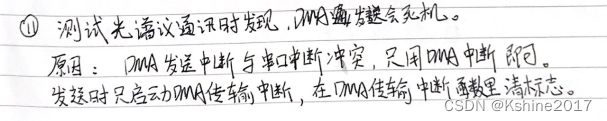 ⑪ 测试光谱议通讯时发现,DMA发送会死机。
原因: DMA发送中断与串口中断冲突,只用DMA中断即可。
发送时只启动DMA传输中断,在DMA传输中断函数里清标志。
CSDN @Kshine2017